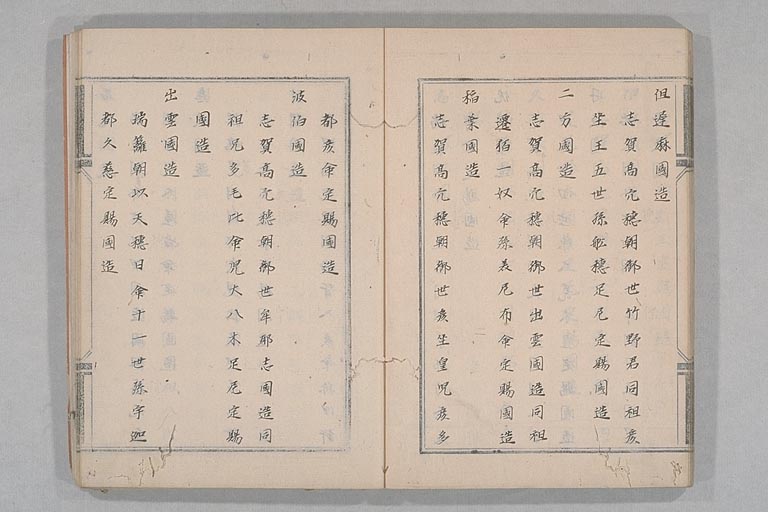 但遅麻國造
志賀髙穴穂朝御世竹野君同祖彦
坐王五世孫舩穂足尼定賜國造
二方國造
志賀髙穴穂朝御世出雲國造同祖
遷狛一奴命孫美尼布命定賜國造
稲葉國造
志賀髙穴穂朝御世彦坐皇児彦多
都彦命定賜國造
波伯國造
志賀髙穴穂朝御世牟耶志國造同
祖兄多毛比命児大八木足尼定賜
國造
出雲國造
瑞籬朝以天穂日命十一世孫宇迦
都久慈定賜國造